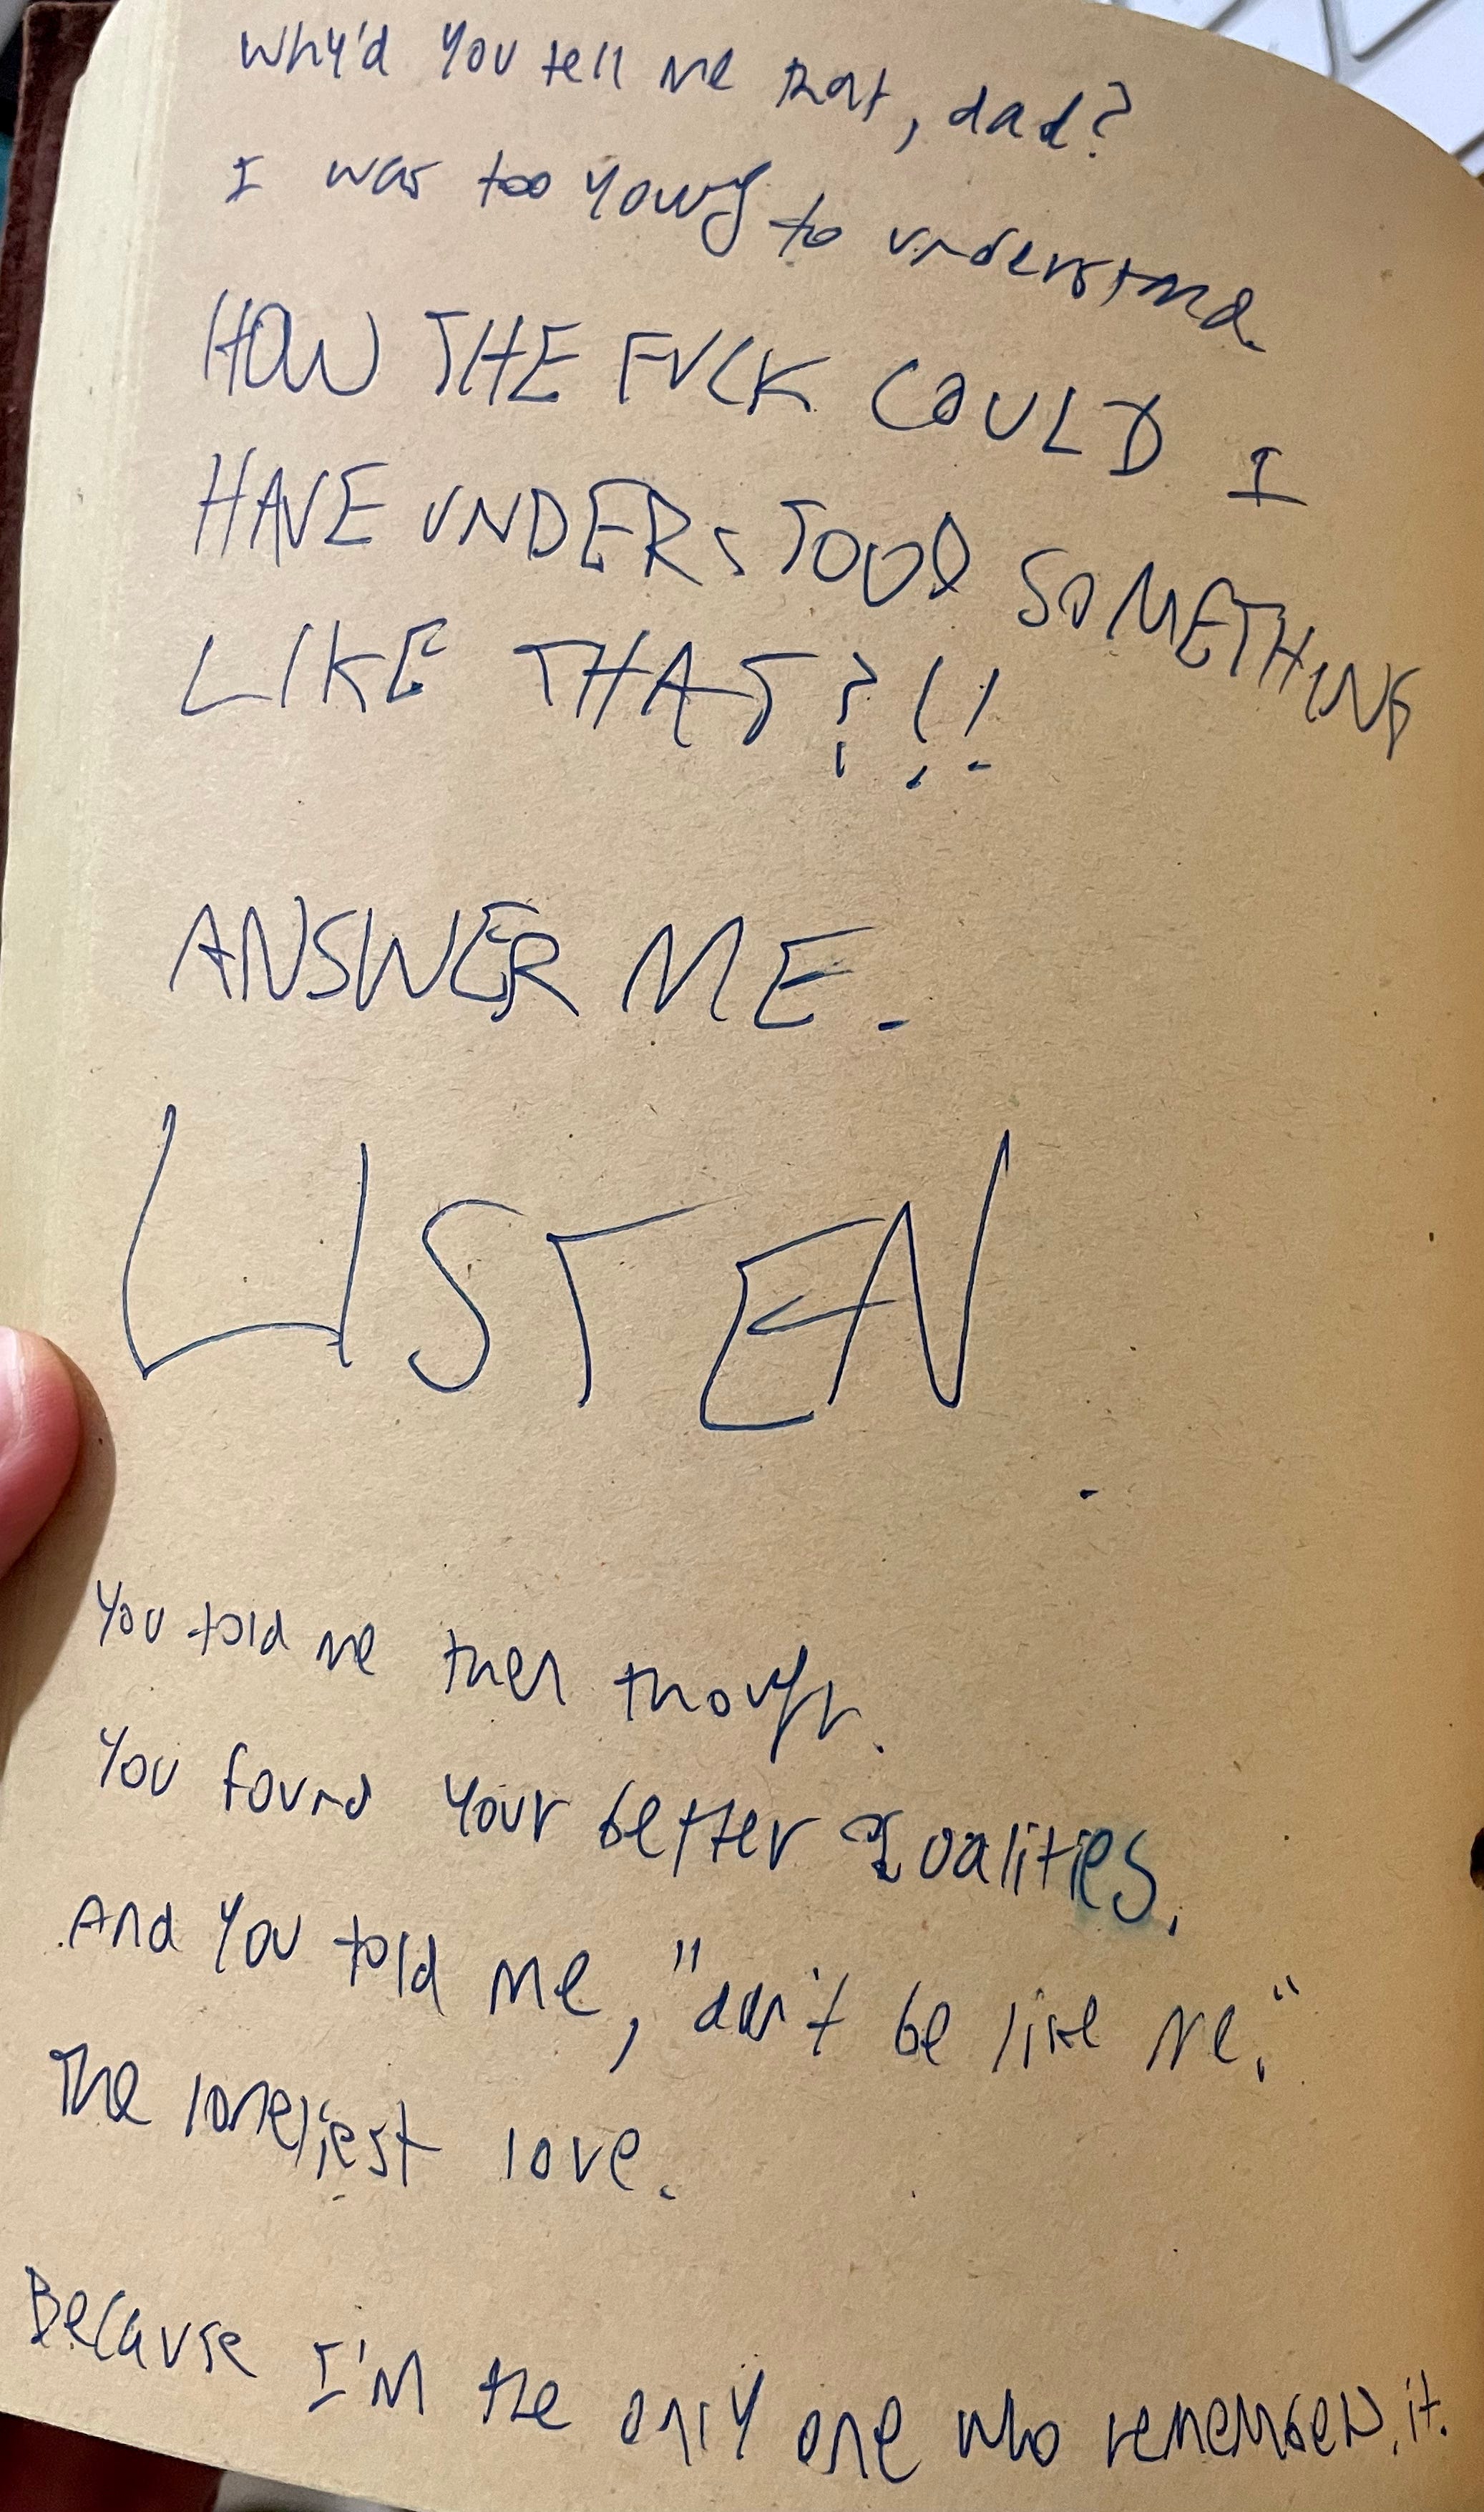 Why'd you tell me that, dad?
I was too young to understand.
HOW THE FUCK COULD I
HAVE UNDERSTOOD SOMETHING
LIKE THAT?!!
ANSWER ME.
LISTEN.
You told me then though.
You found your better qualities.
And you told me, "don't be like me."
The loneliest love.
Because I'm the only one who remembers it.